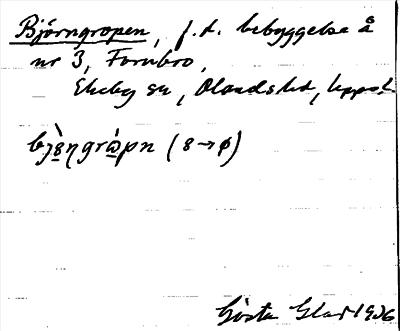 Björngropen, f.d. bebyggelse å
nr 3, Fornbro,
Ekeby sn, Olandshd, Uppsl.
bjȣ̀ŋgrɷ̀pn (ȣ→ɸ)
Gösta Glas 1936